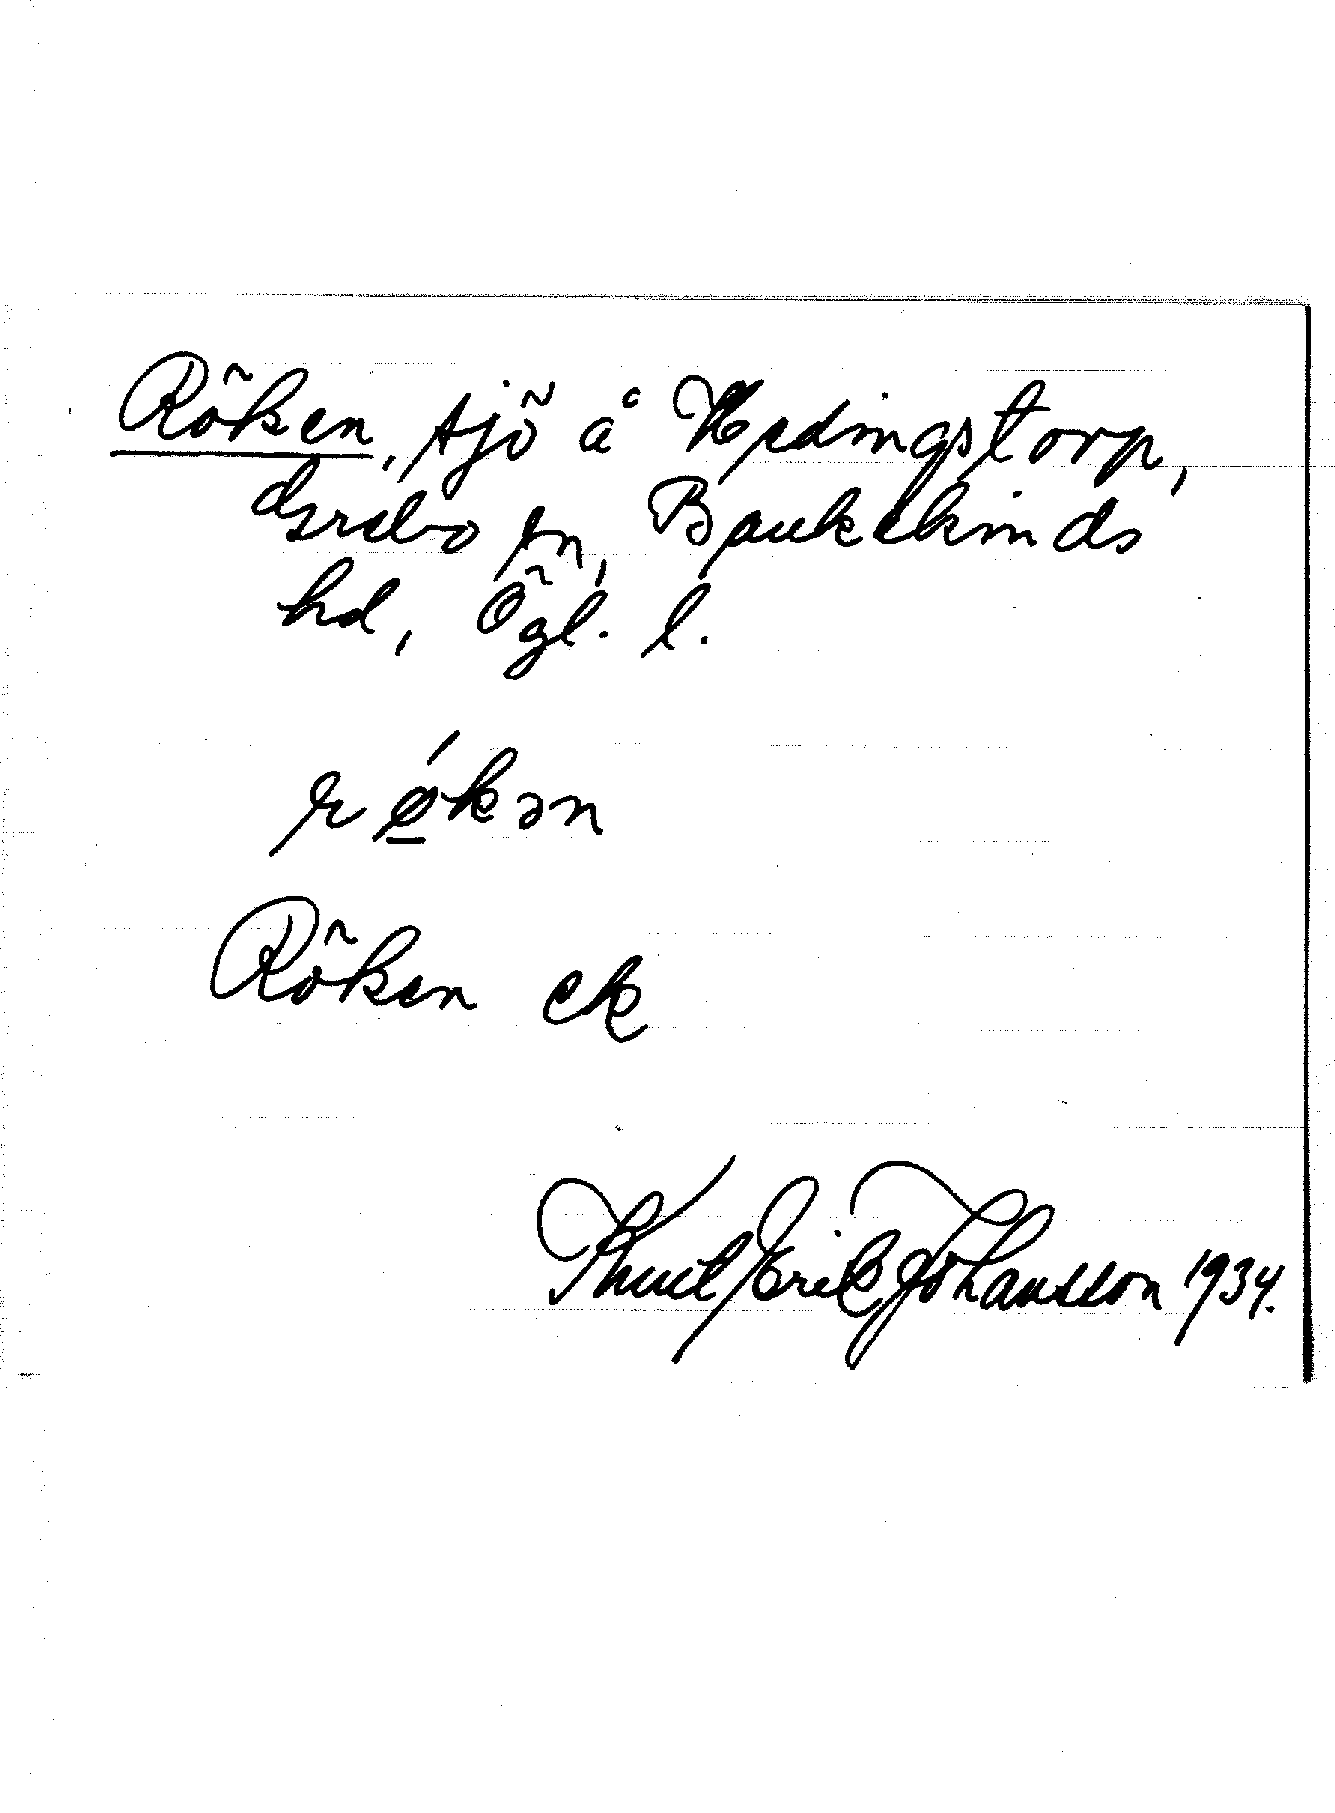 Röken, sjö å Hedingstorp,
Grebo sn, Bankekinds
hd, Ögl. l.
rǿkən
Röken ek
Knut Erik Johansson 1934.